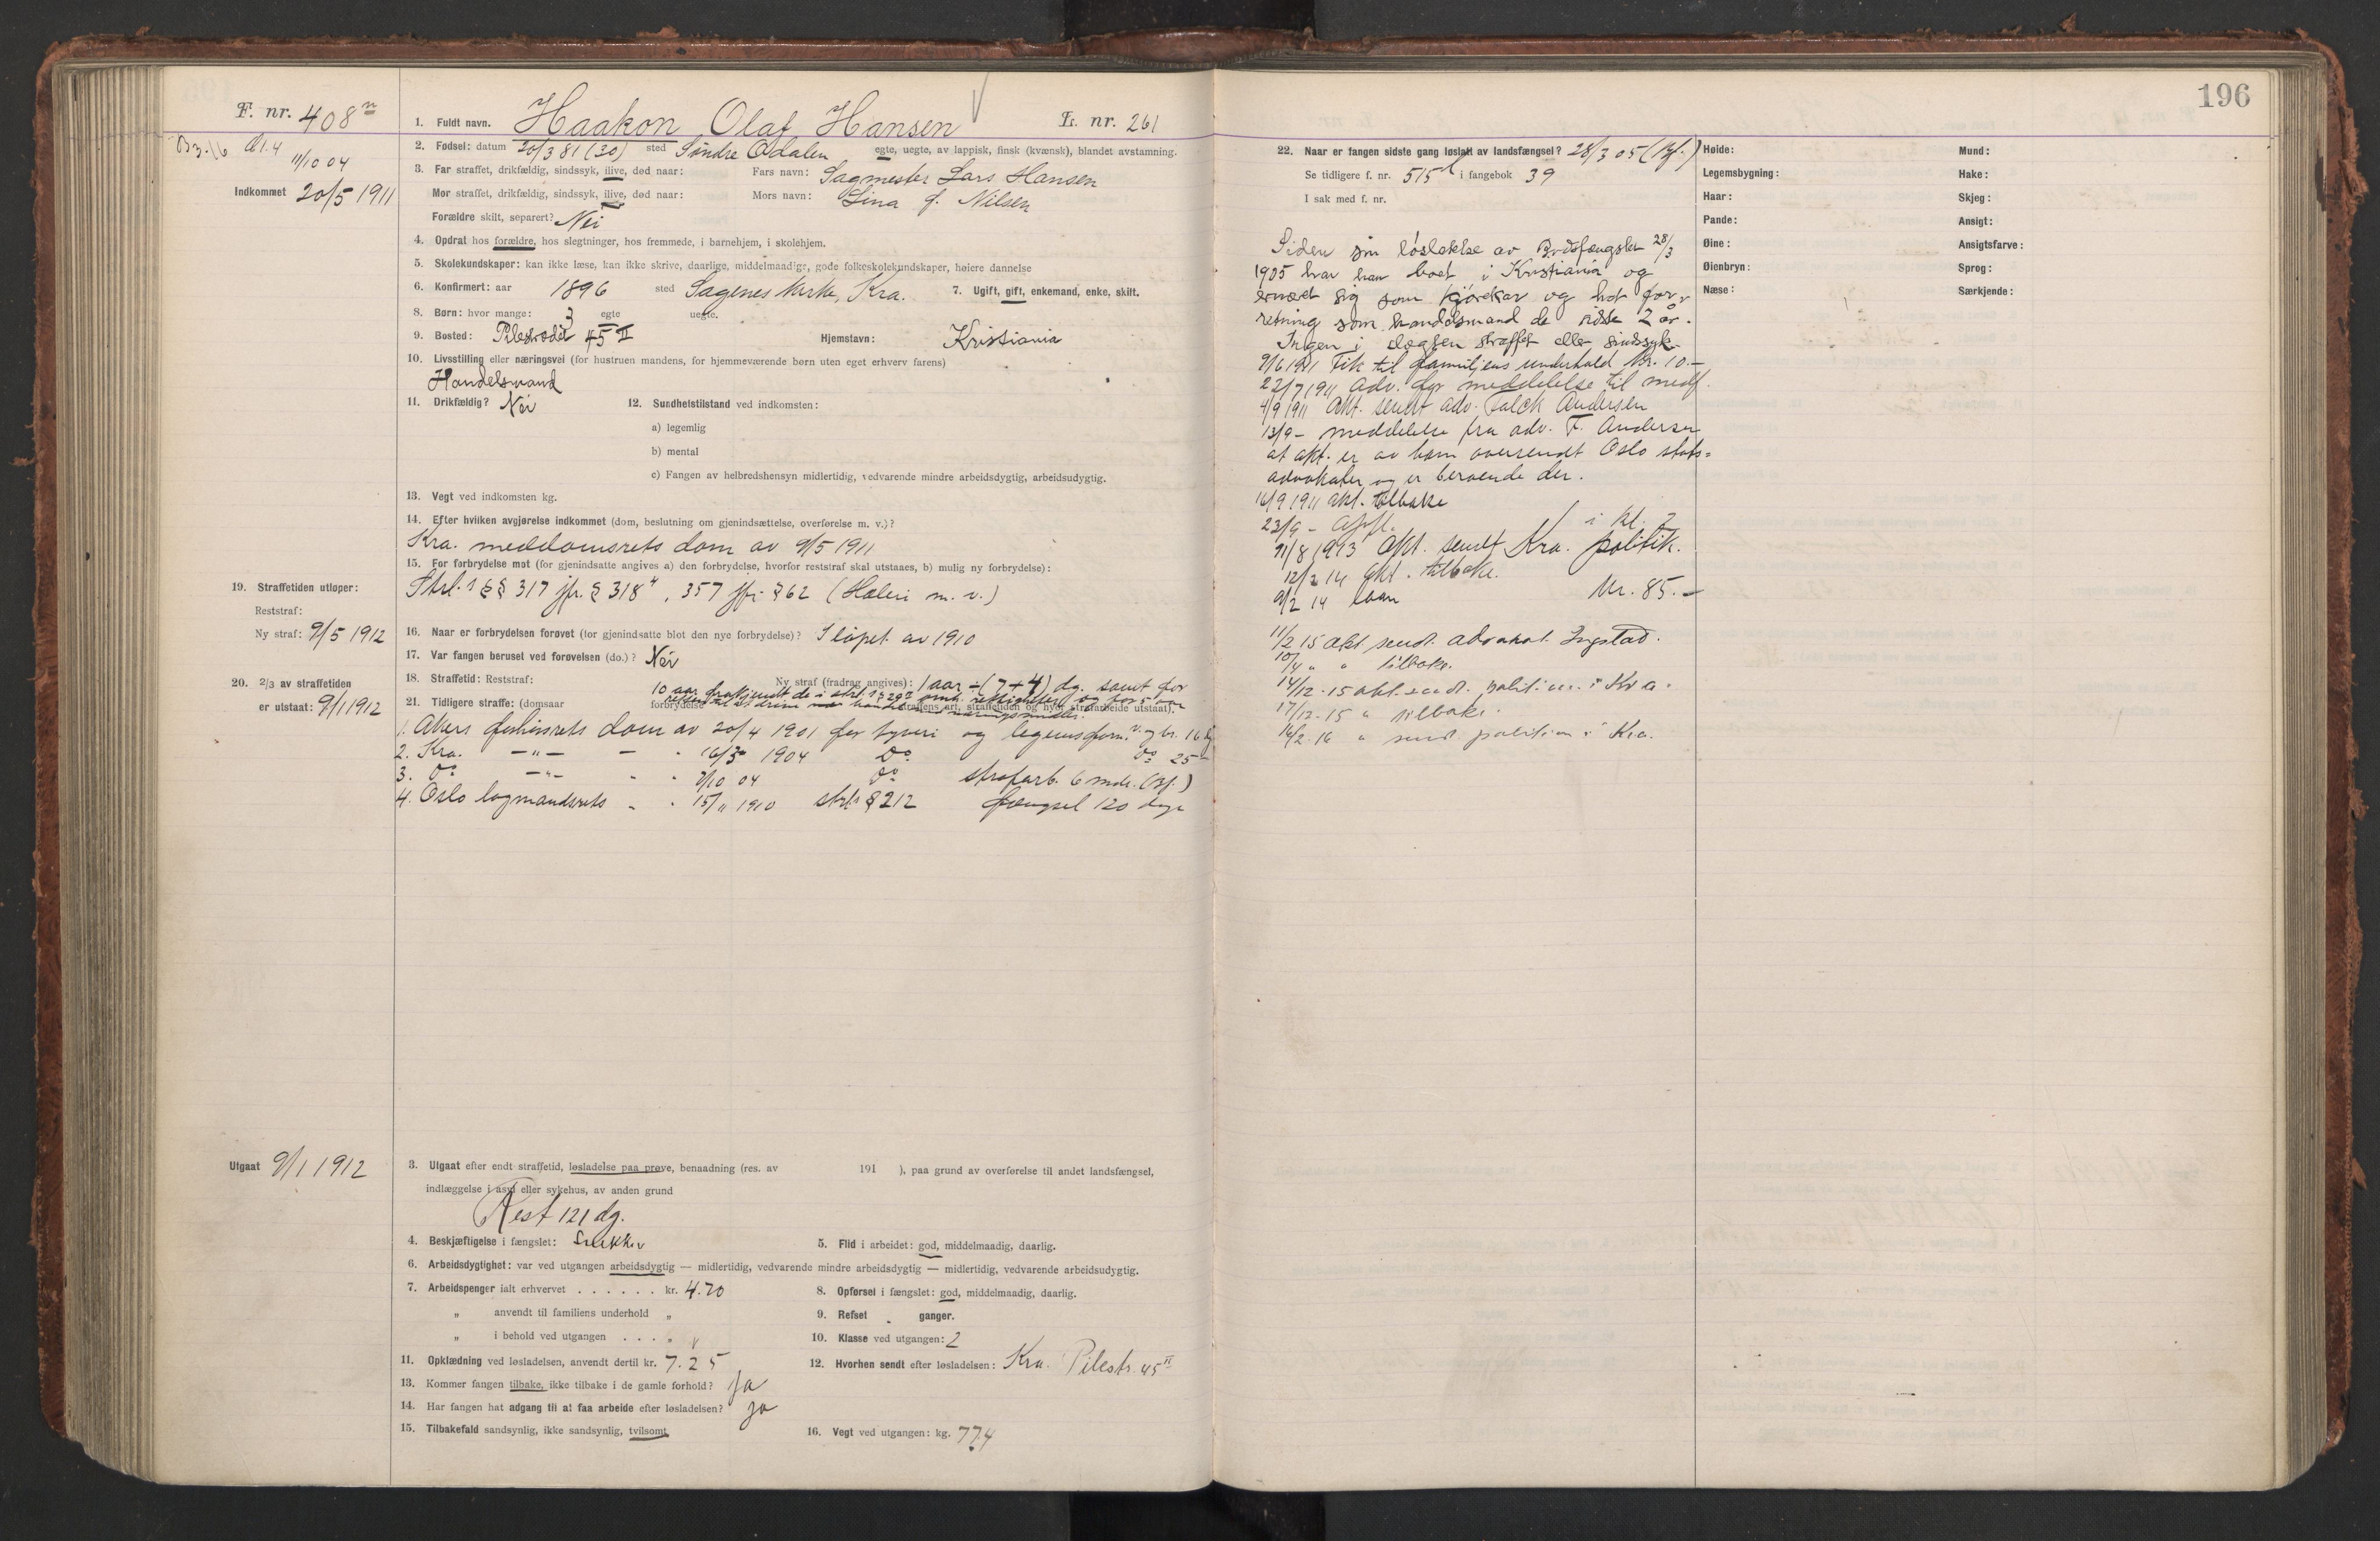 F. nr. 408
11/10 04
Indkommet 20/5 1911
1. Fuldt navn. Haakon Olaf Hansen L. nr. 261
2. Fødsel: datum 20/3 81 (30) sted Søndre Odalen egte, uegte, av lappisk, finsk (kvænsk), blandet avstamning.
3. Far straffet, drikfældig, sindssyk, ilive, død naar: Fars navn: Sagmester Lars Hansen
Mor straffet, drikfældig, sindssyk, ilive, død naar: Mors navn: Lina f. Nilsen
Forældre skilt, separert? Nei
4. Opdrat hos forældre, hos slegtninger, hos fremmede, i barnehjem, i skolehjem.
5. Skolekundskaper: kan ikke læse, kan ikke skrive, daarlige, middelmaadige, gode folkeskolekundskaper, høiere dannelse
6. Konfirmert: aar 1896 sted Sagenes kirke, Kra. 7. Ugift, gift, enkemand, enke, skilt.
8. Børn: hvor mange: 3 egte uegte.
9. Bosted: Pilestrædet 45 II Hjemstavn: Kristiania
10. Livsstilling eller næringsvei (for hustruen mandens, for hjemmeværende børn uten eget erhverv farens)
Handelsmand
11. Drikfældig? Nei 12. Sundhetstilstand ved indkomsten:
a) legemlig
b) mental
c) Fangen av helbredshensyn midlertidig, vedvarende mindre arbeidsdygtig, arbeidsudygtig.
13. Vegt ved indkomsten kg.
14. Efter hvilken avgjørelse indkommet (dom, beslutning om gjenindsættelse, overførelse m. v.)?
Kra. meddomsrets dom av 9/5 1911
15. For forbrydelse mot (for gjenindsatte angives a) den forbrydelse, hvorfor reststraf skal utstaaes, b) mulig ny forbrydelse):
Strl.s §§ 317 jfr. § 318 4, 357 jfr. § 62 (Hæleri m. v.)
19. Straffetiden utløper:
Reststraf:
Ny straf: 9/5 1912
16. Naar er forbrydelsen forøvet (for gjenindsatte blot den nye forbrydelse)? I løpet av 1910
17. Var fangen beruset ved forøvelsen (do.)? Nei
18. Straffetid: Reststraf: Ny straf (fradrag angives): 1 aar ÷ (7+4) dg. samt for
10 aar frakjendt de i strl.s § 29 2 omh. rettigheter og for 5 aar
20. 2/3 av straffetiden
er utstaat: 9/1 1912
21. Tidligere straffe: (domsaar forbrydelse straffens art, straffetiden og hvor strafarbeide utstaat).
1. Akers forhørsrets dom av 20/4 1901 for tyveri og legemsforn.
2. Kra. —"— - " 16/3 1904 Do Do 25
3. Do —"— " " 11/10 04 Do strafarb. 6 mdr. (Bf.)
4. Oslo lagmandsrets " " 15/11 1910 strl.s § 212 fængsel 120 dage
Utgaat 9/1 1912
3. Utgaat efter endt straffetid, løsladelse paa prøve, benaadning (res. av 191 ), paa grund av overførelse til andet landsfængsel,
indlæggelse i asyl eller sykehus, av anden grund
Rest 121 dg.
4. Beskjæftigelse i fængslet: Snekker 5. Flid i arbeidet: god, middelmaadig, daarlig.
6. Arbeidsdygtighet: var ved utgangen arbeidsdygtig — midlertidig, vedvarende mindre arbeidsdygtig — midlertidig, vedvarende arbeidsudygtig.
7. Arbeidspenger ialt erhvervet . . . . . . kr. 4.70 8. Opførsel i fængslet: god, middelmaadig, daarlig.
„ anvendt til familiens underhold „ 9. Refset „ ganger.
„ i behold ved utgangen . . . „ 10. Klasse ved utgangen: 2
11. Opklædning ved løsladelsen, anvendt dertil kr. 7.25 12. Hvorhen sendt efter løsladelsen: Kra. Pilestr. 45 II
13. Kommer fangen tilbake, ikke tilbake i de gamle forhold? Ja
14. Har fangen hat adgang til at faa arbeide efter løsladelsen? Ja
15. Tilbakefald sandsynlig, ikke sandsynlig, tvilsomt 16. Vegt ved utgangen: kg. 77.4
196
22. Naar er fangen sidste gang løslatt av landsfængsel? 28/3 05 (Bf.)
Se tidligere f. nr. 515 i fangebok 39
I sak med f. nr.
Siden sin løslatelse av Bodsfængslet 28/3
1905 har han boet i Kristiania og
ernæret sig som kjørekar og hat for-
retning som handelsmand de sidste 2 år.
Ingen i slegten straffet eller sindssyk
9/6 1911 Fik til familjens underhold kr. 10.—
22/7 1911 Adv. for meddelelse til medf.
4/9 1911 Akt. sendt adv. Falck Andersen
13/9 - meddelelse fra adv. F. Andersen
at akt. er av ham oversendt Oslo stats=
advokater og er beroende der.
16/9 1911 akt. tilbake
23/9 - Opfl. i kl. 2
11/8 1913 Akt. sendt Kra. politik.
12/2 14 Akt. tilbake.
9/2 14 laan kr. 85.—
11/2 15 akt sendt advokat Ingstad.
10/4 " " tilbake.
14/12-15 akt. sendt politim. i Kra.
17/12-15 " tilbake.
16/2-16 " sendt politim i Kra.
Høide:
Legemsbygning:
Haar:
Pande:
Øine:
Øienbryn:
Næse:
Mund:
Hake:
Skjeg:
Ansigt:
Ansigtsfarve:
Sprog:
Særkjende: